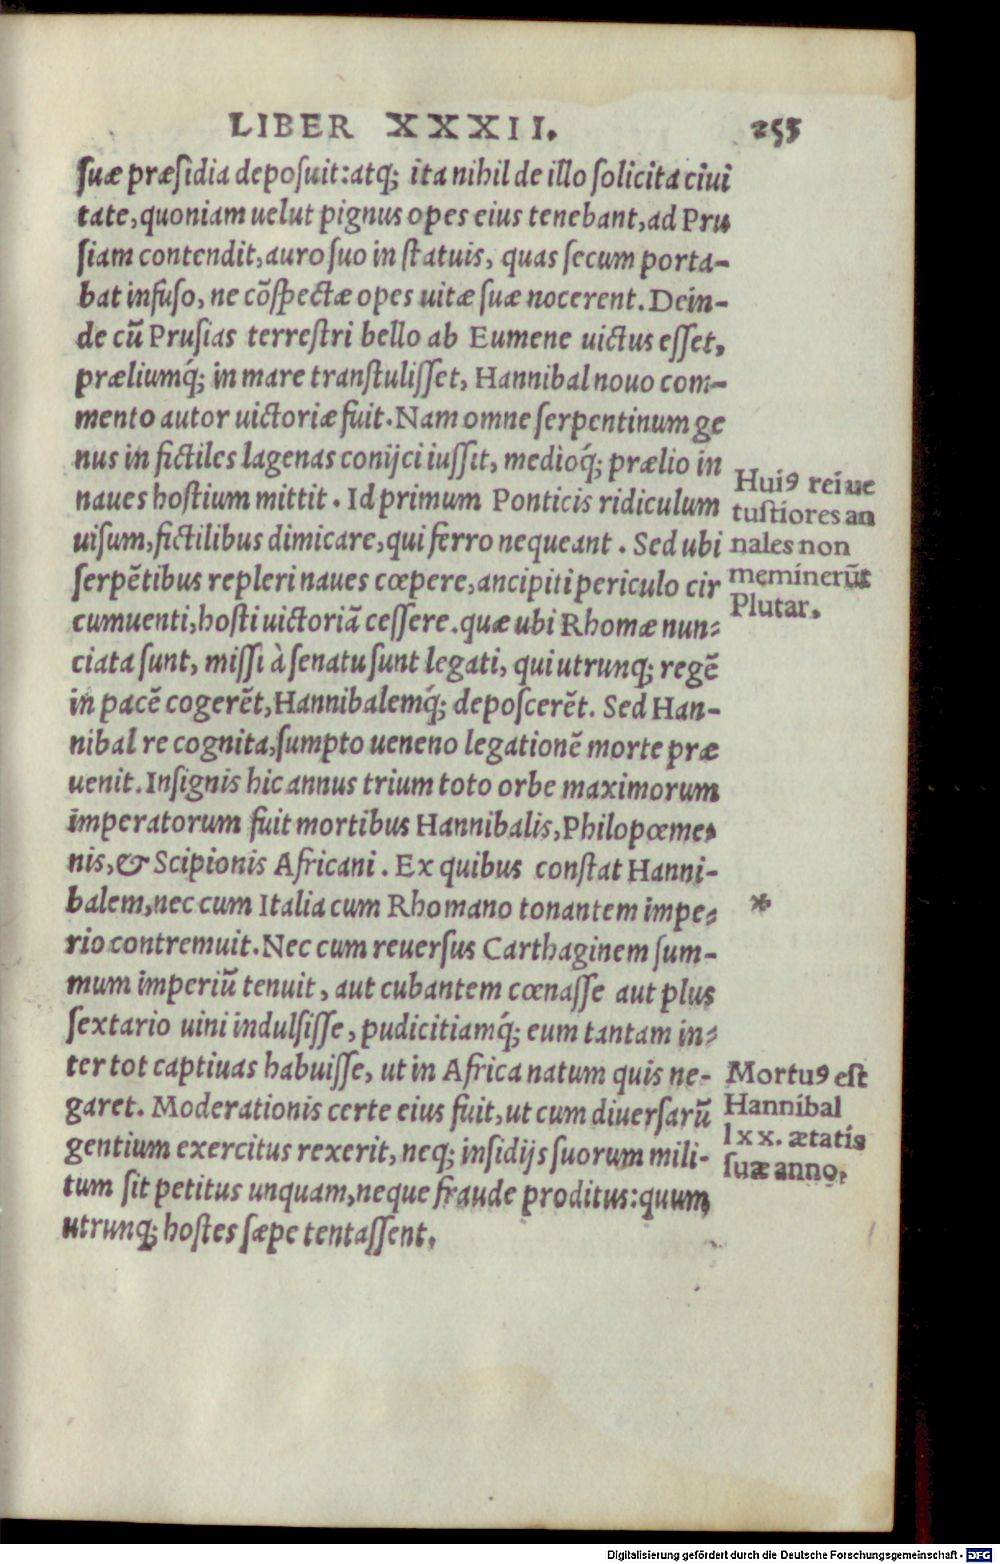 LIBER XXXII. 253
suæ præsidia deposuit: atq; ita nihil de illo solicita ciui
tate, quoniam uelut pignus opes eius tenebant, ad Pru
siam contendit, auro suo in statuis, quas secum porta-
bat infuso, ne cõspectæ opes uitæ suæ nocerent. Dein-
de cũ Prusias terrestri bello ab Eumene uictus esset,
præliumq́; in mare transtulisset, Hannibal nouo com-
mento autor uictoriæ fuit. Nam omne serpentinum ge
nus in fictiles lagenas conijci iussit, medioq́; prælio in
naues hostium mittit. Id primum Ponticis ridiculum
uisum, fictilibus dimicare, qui ferro nequeant. Sed ubi
serpẽtibus repleri naues cœpere, ancipiti periculo cir
cumuenti, hosti uictoriã cessere. quæ ubi Rhomæ nun-
ciata sunt, missi à senatu sunt legati, qui utrunq; regẽ
in pacẽ cogerẽt, Hannibalemq́; deposcerẽt. Sed Han-
nibal re cognita, sumpto ueneno legationẽ morte præ
uenit. Insignis hic annus trium toto orbe maximorum
imperatorum fuit mortibus Hannibalis, Philopœme-
nis, & Scipionis Africani. Ex quibus constat Hanni-
balem, nec cum Italia cum Rhomano tonantem impe-
rio contremuit. Nec cum reuersus Carthaginem sum-
mum imperiũ tenuit, aut cubantem cœnasse aut plus
sextario uini indulsisse, pudicitiamq́; eum tantam in-
ter tot captiuas habuisse, ut in Africa natum quis ne-
garet. Moderationis certe eius fuit, ut cum diuersarũ
gentium exercitus rexerit, neq; insidijs suorum mili-
tum sit petitus unquam, neque fraude proditus: quum
utrunq; hostes sæpe tentassent.
Huiꝰ rei ue
tustiores an
nales non
meminerũt
Plutar.
*
Mortuꝰ est
Hannibal
lxx. ætatis
suæ anno.
Digitalisierung gefördert durch die Deutsche Forschungsgemeinschaft - DFG